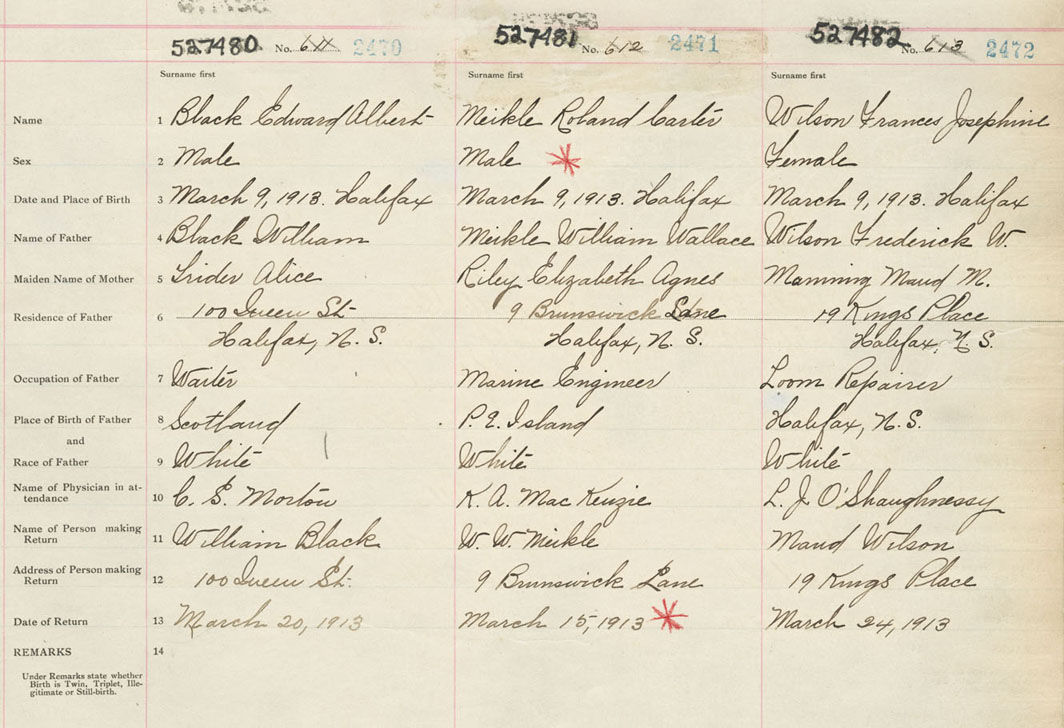 527480 No. 611 2470 527481 No. 612 2471 527482 No. 613 2472
Surname first Surname first Surname first
Name 1 Black Edward Albert Meikle Roland Carter Wilson Frances Josephine
Sex 2 Male Male Female
Date and Place of Birth 3 March 9, 1913. Halifax March 9, 1913. Halifax March 9, 1913. Halifax
Name of Father 4 Black William Meikle William Wallace Wilson Frederick W.
Maiden Name of Mother 5 Alice Riley Elizabeth Agnes Manning Maud M.
Residence of Father 6 100 Queen St. 9 Brunswick Lane 19 Kings Place
Halifax, N. S. Halifax, N. S. Halifax, N. S.
Occupation of Father 7 Waiter Marine Engineer Loom Repairer
Place of Birth of Father 8 Scotland P. E. Island Halifax, N. S.
and
Race of Father 9 White White White
Name of Physician in at-
tendance 10 C. S. Morton K. A. MacKenzie L. J. O'Shaughnessy
Name of Person making
Return 11 William Black W. W. Meikle Maud Wilson
Address of Person making
Return 12 100 Queen St. 9 Brunswick Lane 19 Kings Place
Date of Return 13 March 20, 1913 March 15, 1913 March 24, 1913
REMARKS 14
Under Remarks state whether
Birth is Twin, Triplet, Ille-
gitimate or Still-birth.